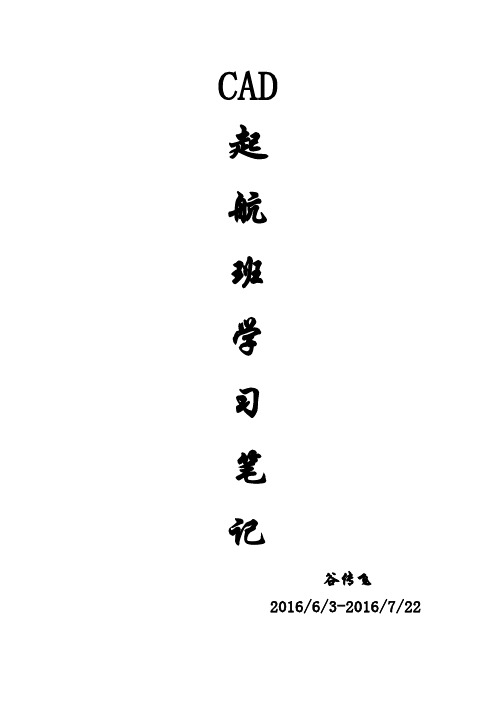 CAD
起
航
班
学
习
笔
记
谷传飞
2016/6/3-2016/7/22